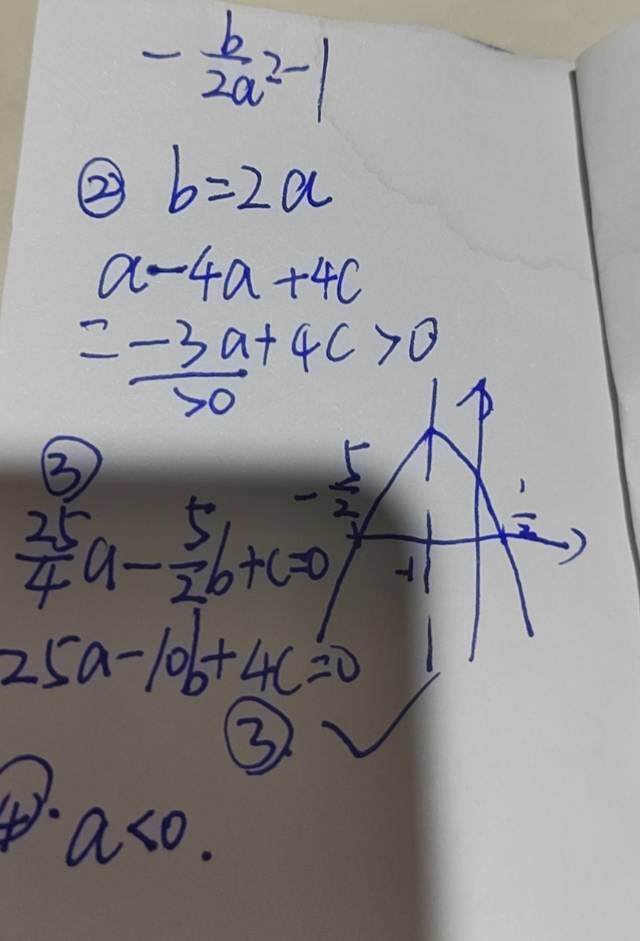 -\frac{b}{2a}=-1
② b=2a
a-4a+4c
=-3a+4c>0
>0
③
\frac{25}{4}a-\frac{5}{2}b+c=0
-\frac{5}{2}
\frac{1}{2}
-1
25a-10b+4c=0
③. ✓
④. a<0.